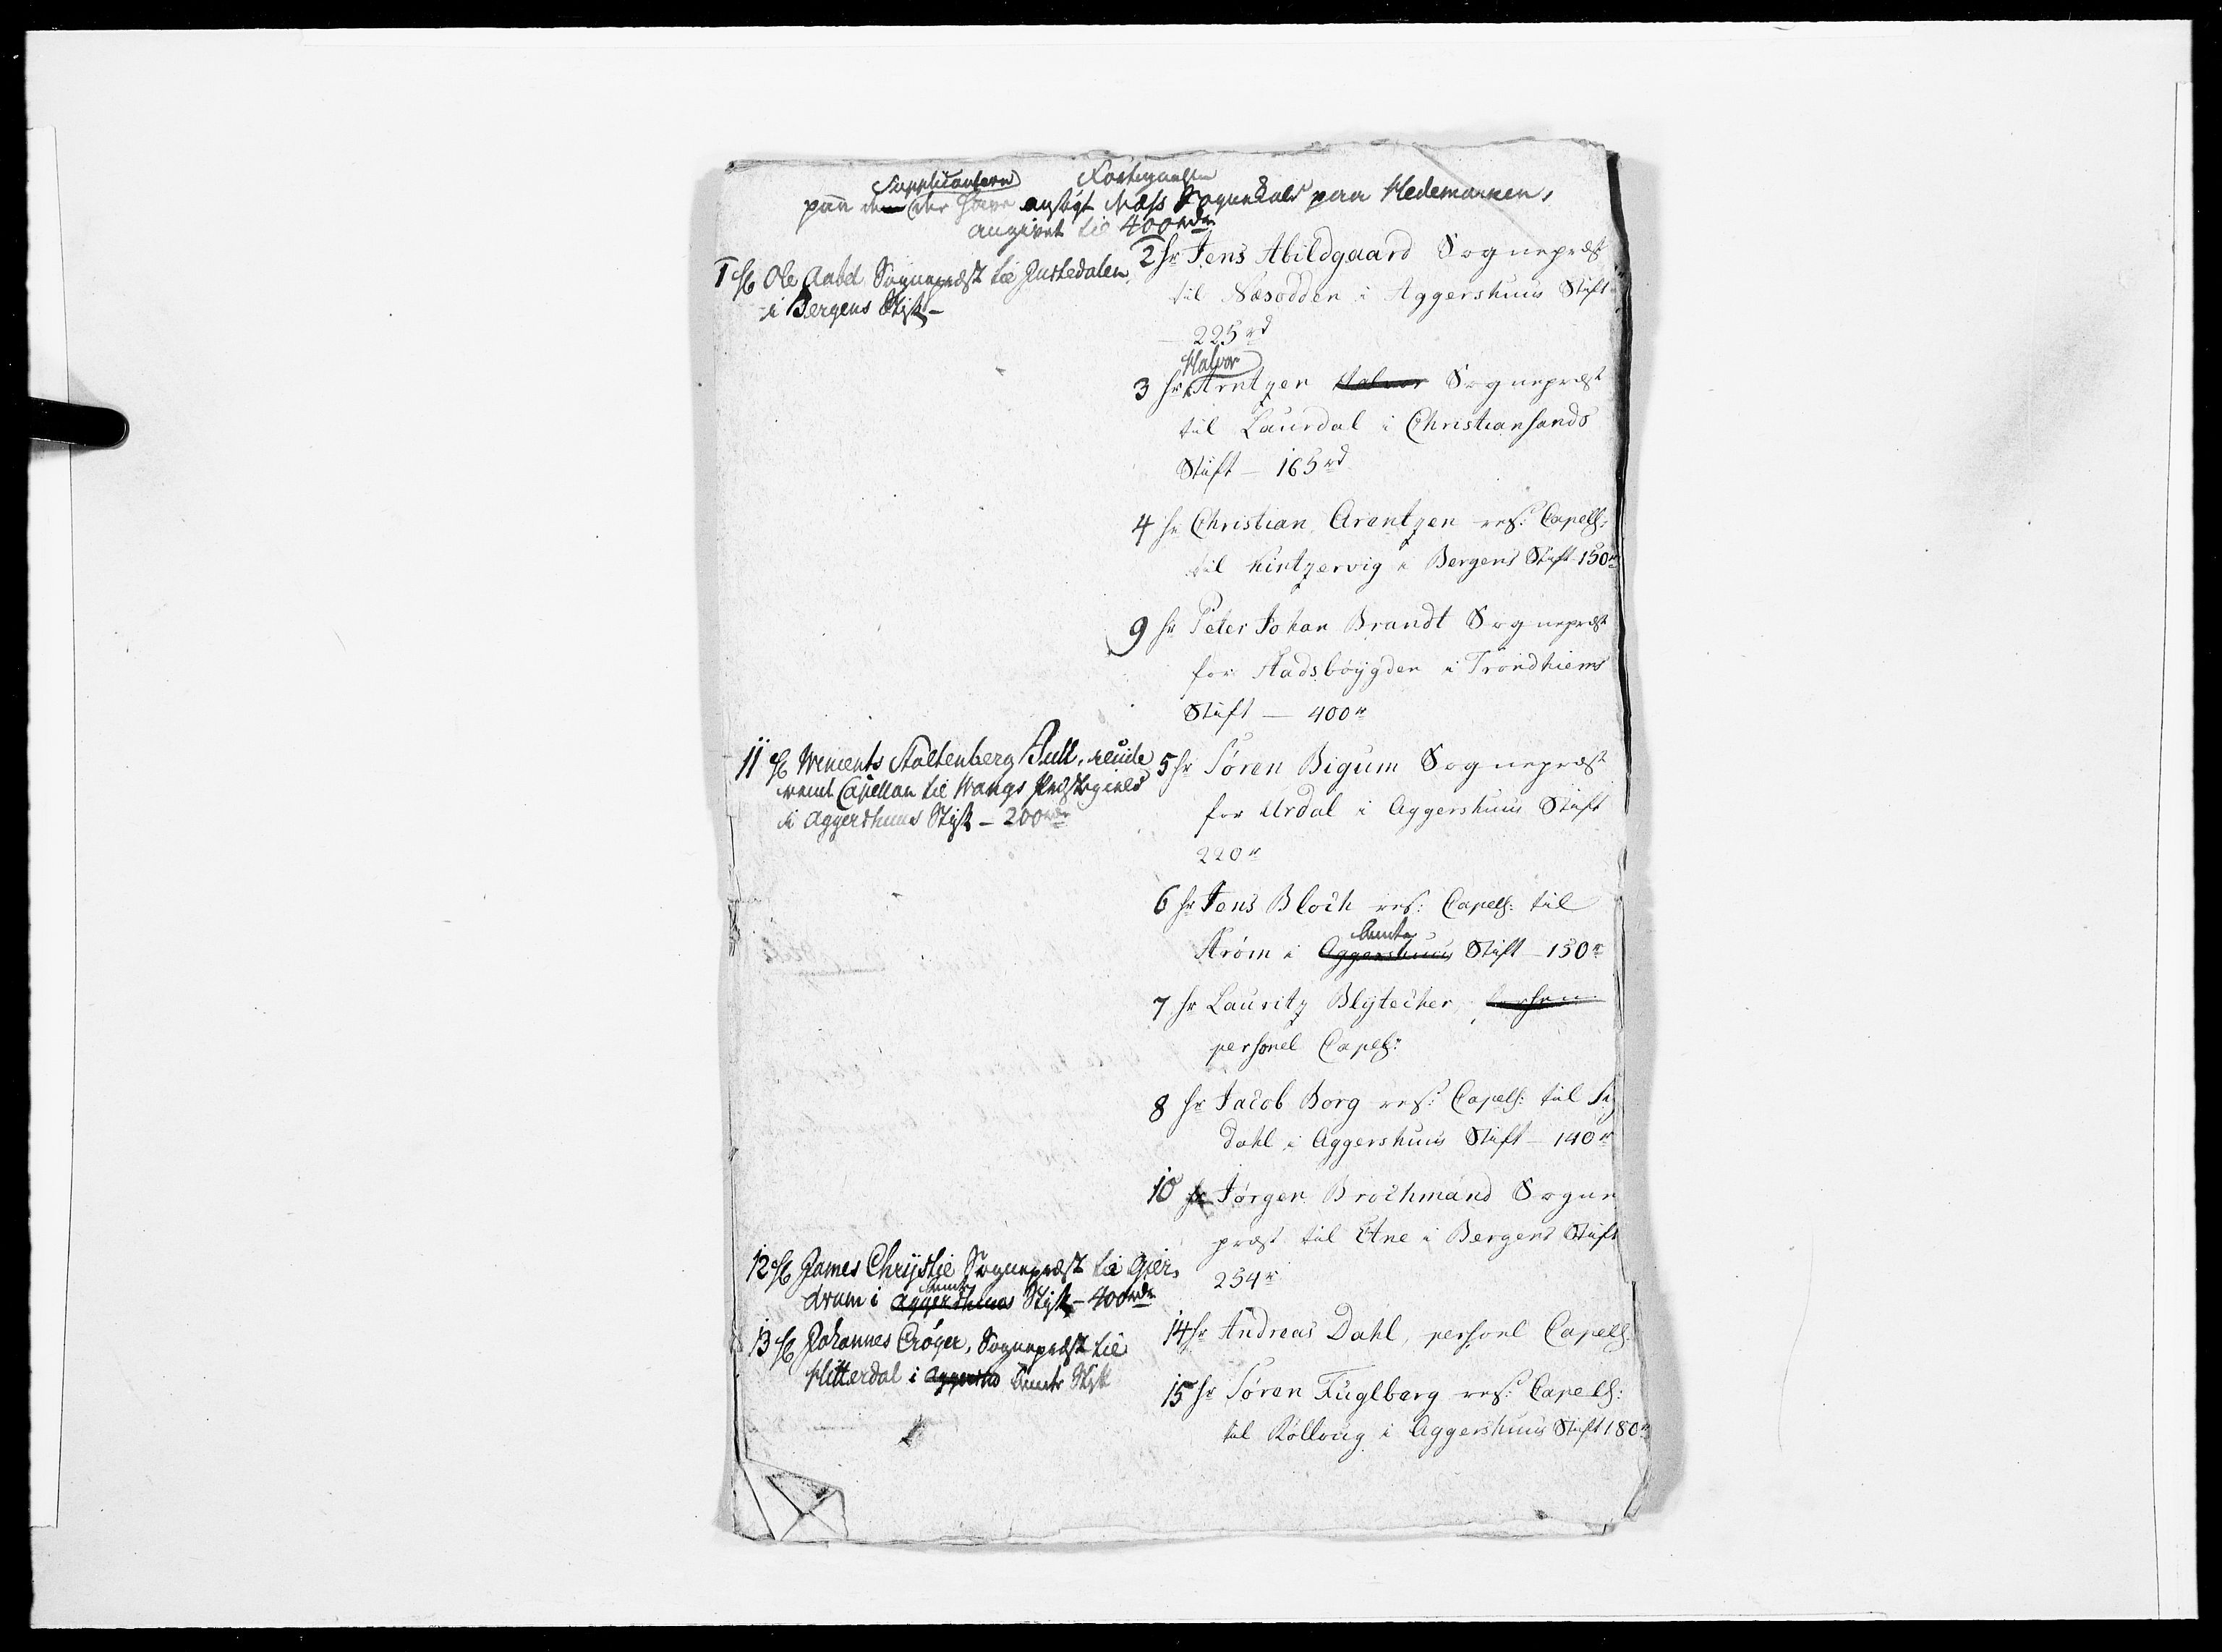 Fortegnelse
paa Supplicantere der have ansøgt Næss Sognekald paa Hedemarken,
angivet til 400 rdr
1 Hr Ole Aabel Sognepræst til Justedalen
i Bergens Stift –
2 hr Jens Abildgaard Sognepræst
til Næsodden i Aggershuus Stift
225 rd
3 hr Halvor Arntzen Halvor Sognepræst
til Laurdal i Christiansands
Stift – 165 rd
4 hr Christian Arentzen res: Capell:
til Kintzervig i Bergens Stift 150 r
9 hr Peter Johan Brandt Sognepræst
for Stadsbøygden i Trondhiems
Stift – 400 r
11 Hr Vincents Stoltenberg Bull, reside
rende Capellan til Wangs Præstegield
i Aggershuus Stift – 200 rdr
5 hr Søren Bigum Sognepræst
for Urdal i Aggershuus Stift
220 r
6 hr Jens Bloch res: Capell: til
Strøm i Aggershuus Stift – 150 r
7 hr Lauritz Blytecher
personel Capell:
8 hr Jacob Borg res: Capell: til Sig
dahl i Aggershuus Stift – 140 r
10 hr Jørgen Brochmand Sogne
præst til Etne i Bergens Stift
254 r
12 Hr James Chrystie Sognepræst til Gier
drum i Aggershuus Stift – 400 rdr
13 Hr Johannes Crøger, Sognepræst til
Hitterdal i Stift
14 hr Andreas Dahl, personl Capell
15 hr Søren Fuglberg res: Capell:
til Rolloug i Aggershuus Stift 180 r